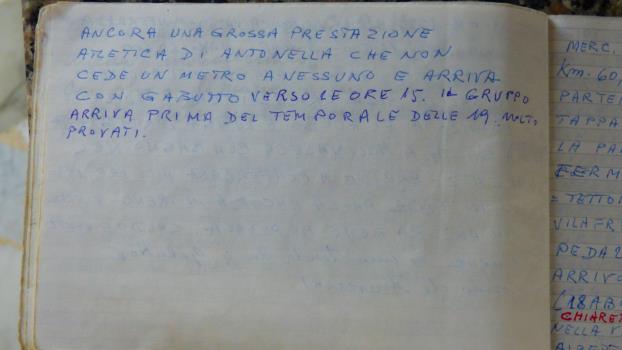 ANCORA UNA GROSSA PRESTAZIONE
ATLETICA DI ANTONELLA CHE NON
CEDE UN METRO A NESSUNO E ARRIVA
CON GABUTTO VERSO LE ORE 15. IL GRUPPO
ARRIVA PRIMA DEL TEMPORALE DELLE 19. MOLTO
PROVATI.
MERC.
Km. 60,
PARTEN
TAPPA
LA PA
FERM
= TETTO
VILAFR
PEDAL
ARRIVO
(18AB
CHIARE
NELLA